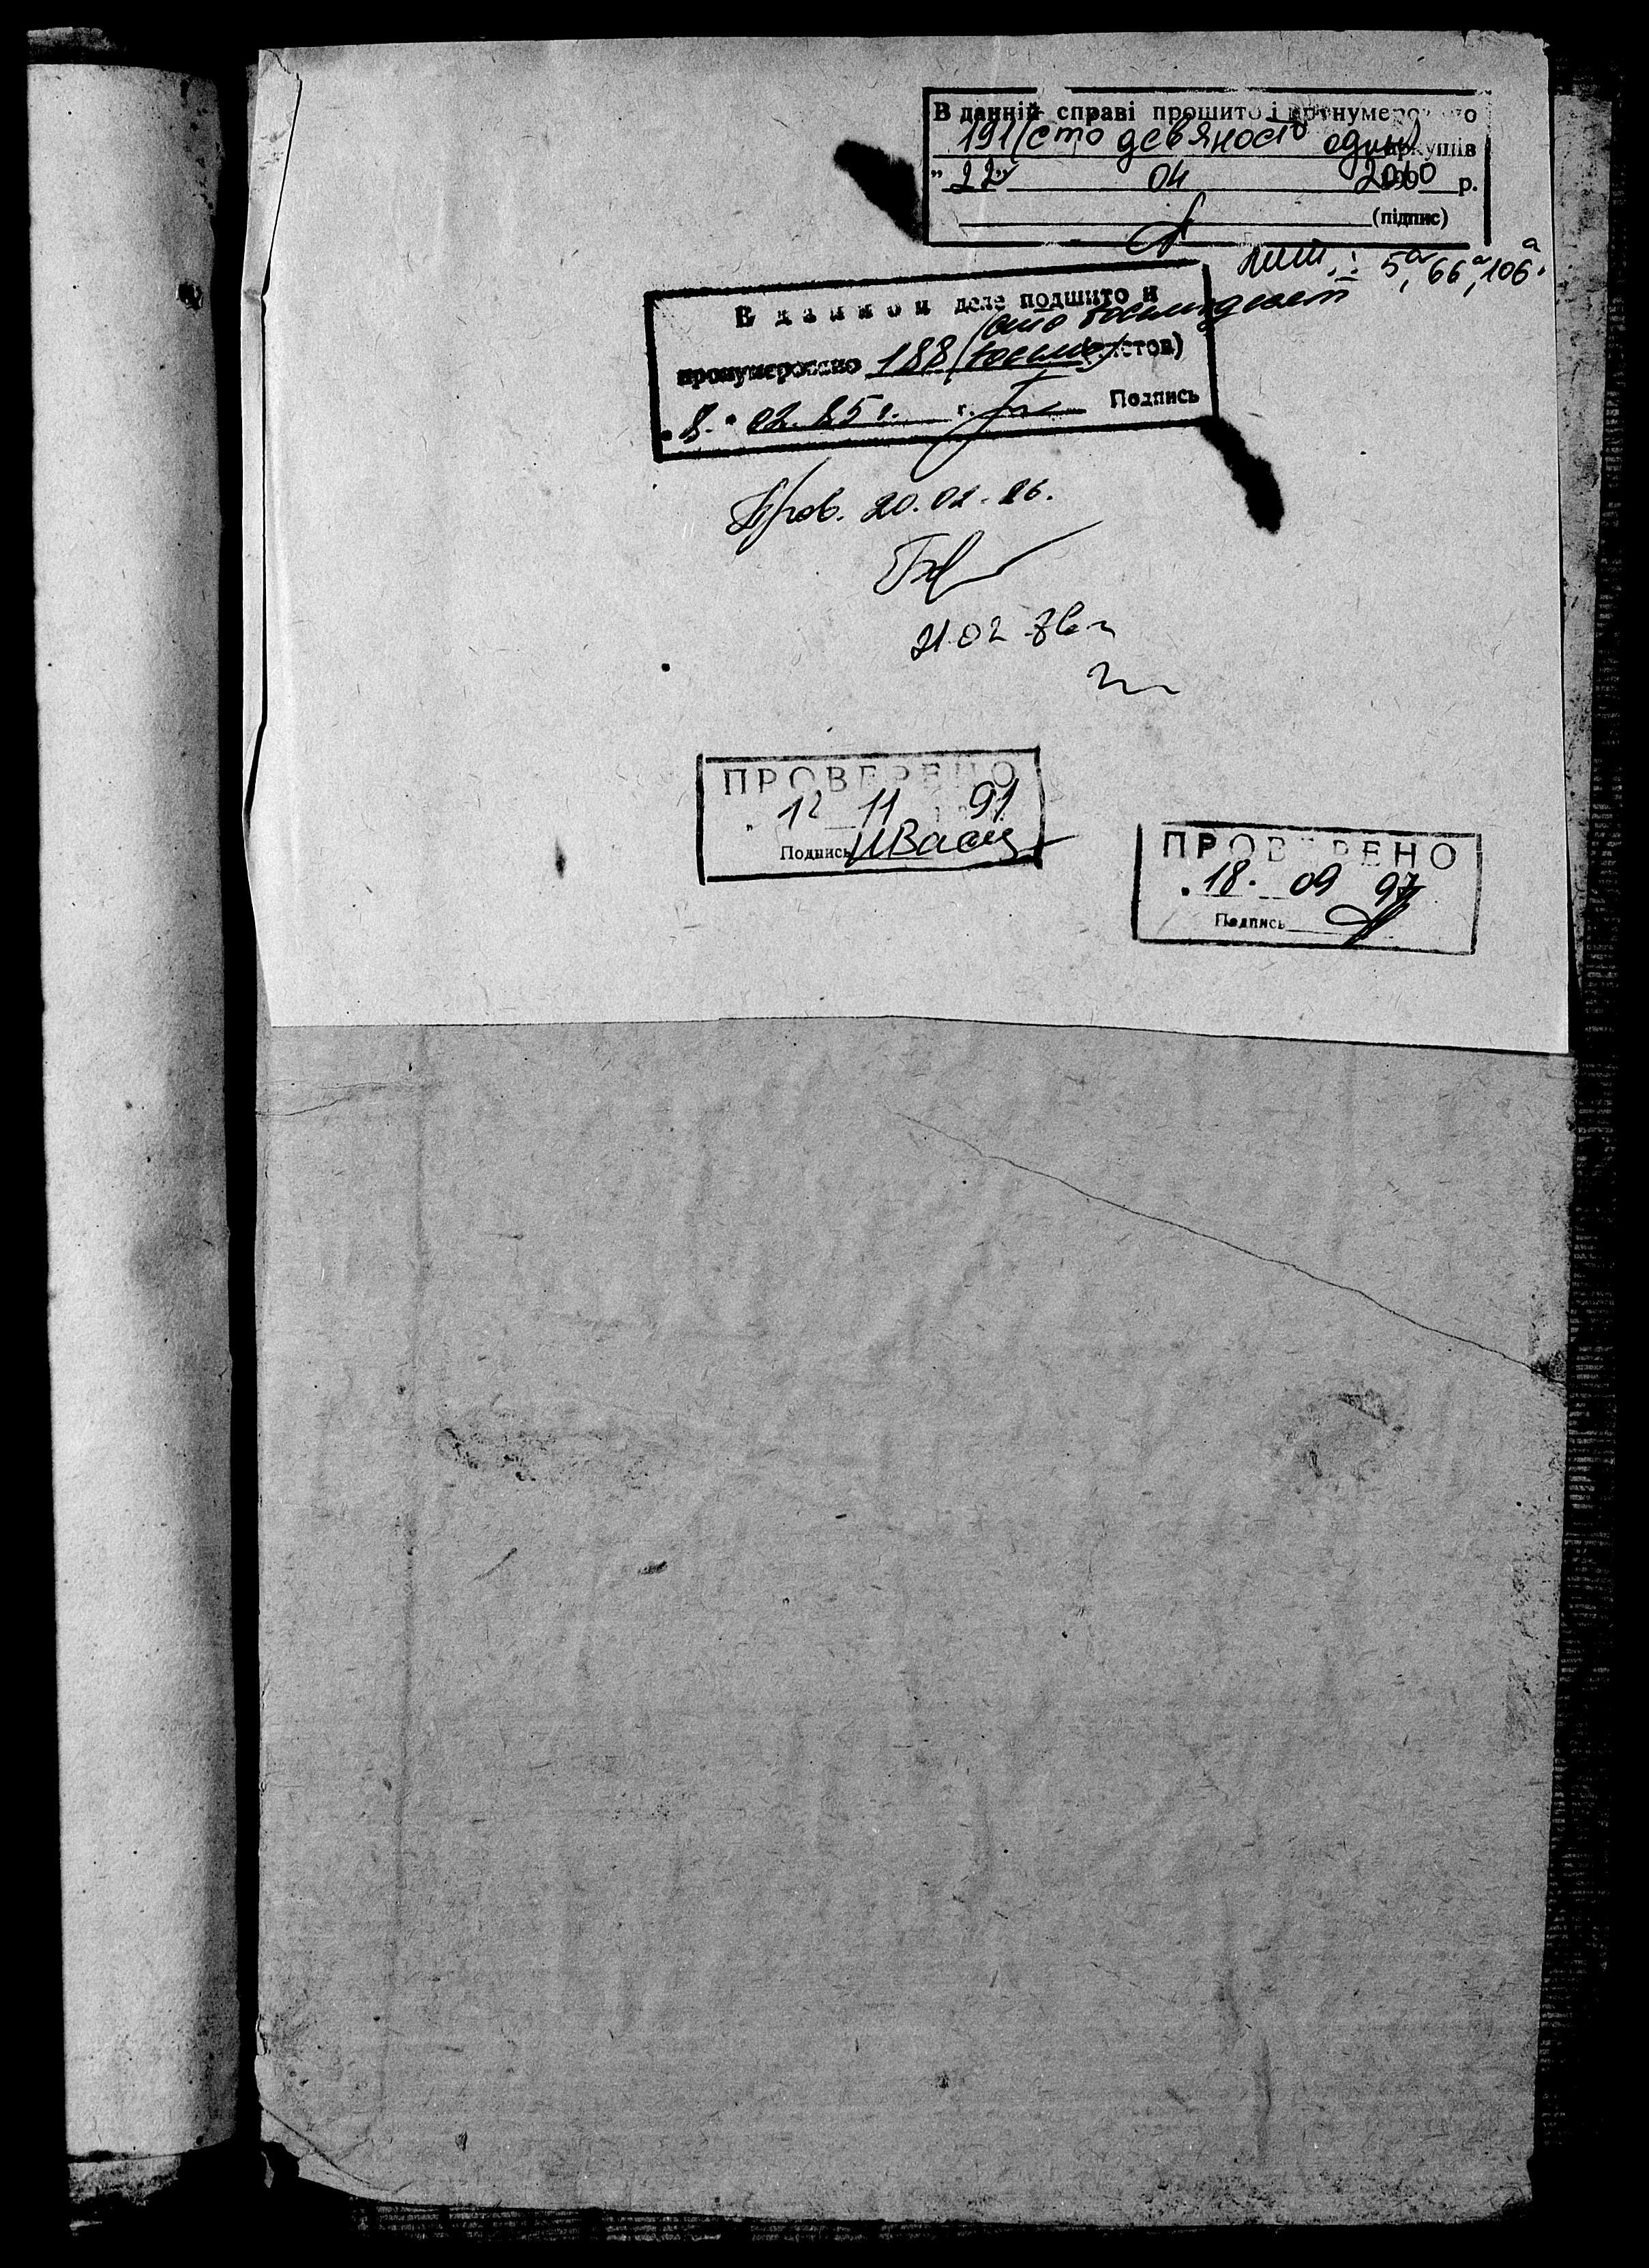 В данній справі прошито і пронумеровано
191 (сто дев'яносто один) аркушів
"22" 04 2010 р.
(підпис)
літ.: 5а, 66а, 106а.
В данном деле подшито и
(сто восемьдесят
пронумеровано 188 восемь) листов)
"8" 02.85 г. г. Подпись
Пров. 20.02.86.
21.02
ПРОВЕРЕНО
"12 11 91
Подпись
ПРОВЕРЕНО
"18. 09 97
Подпись